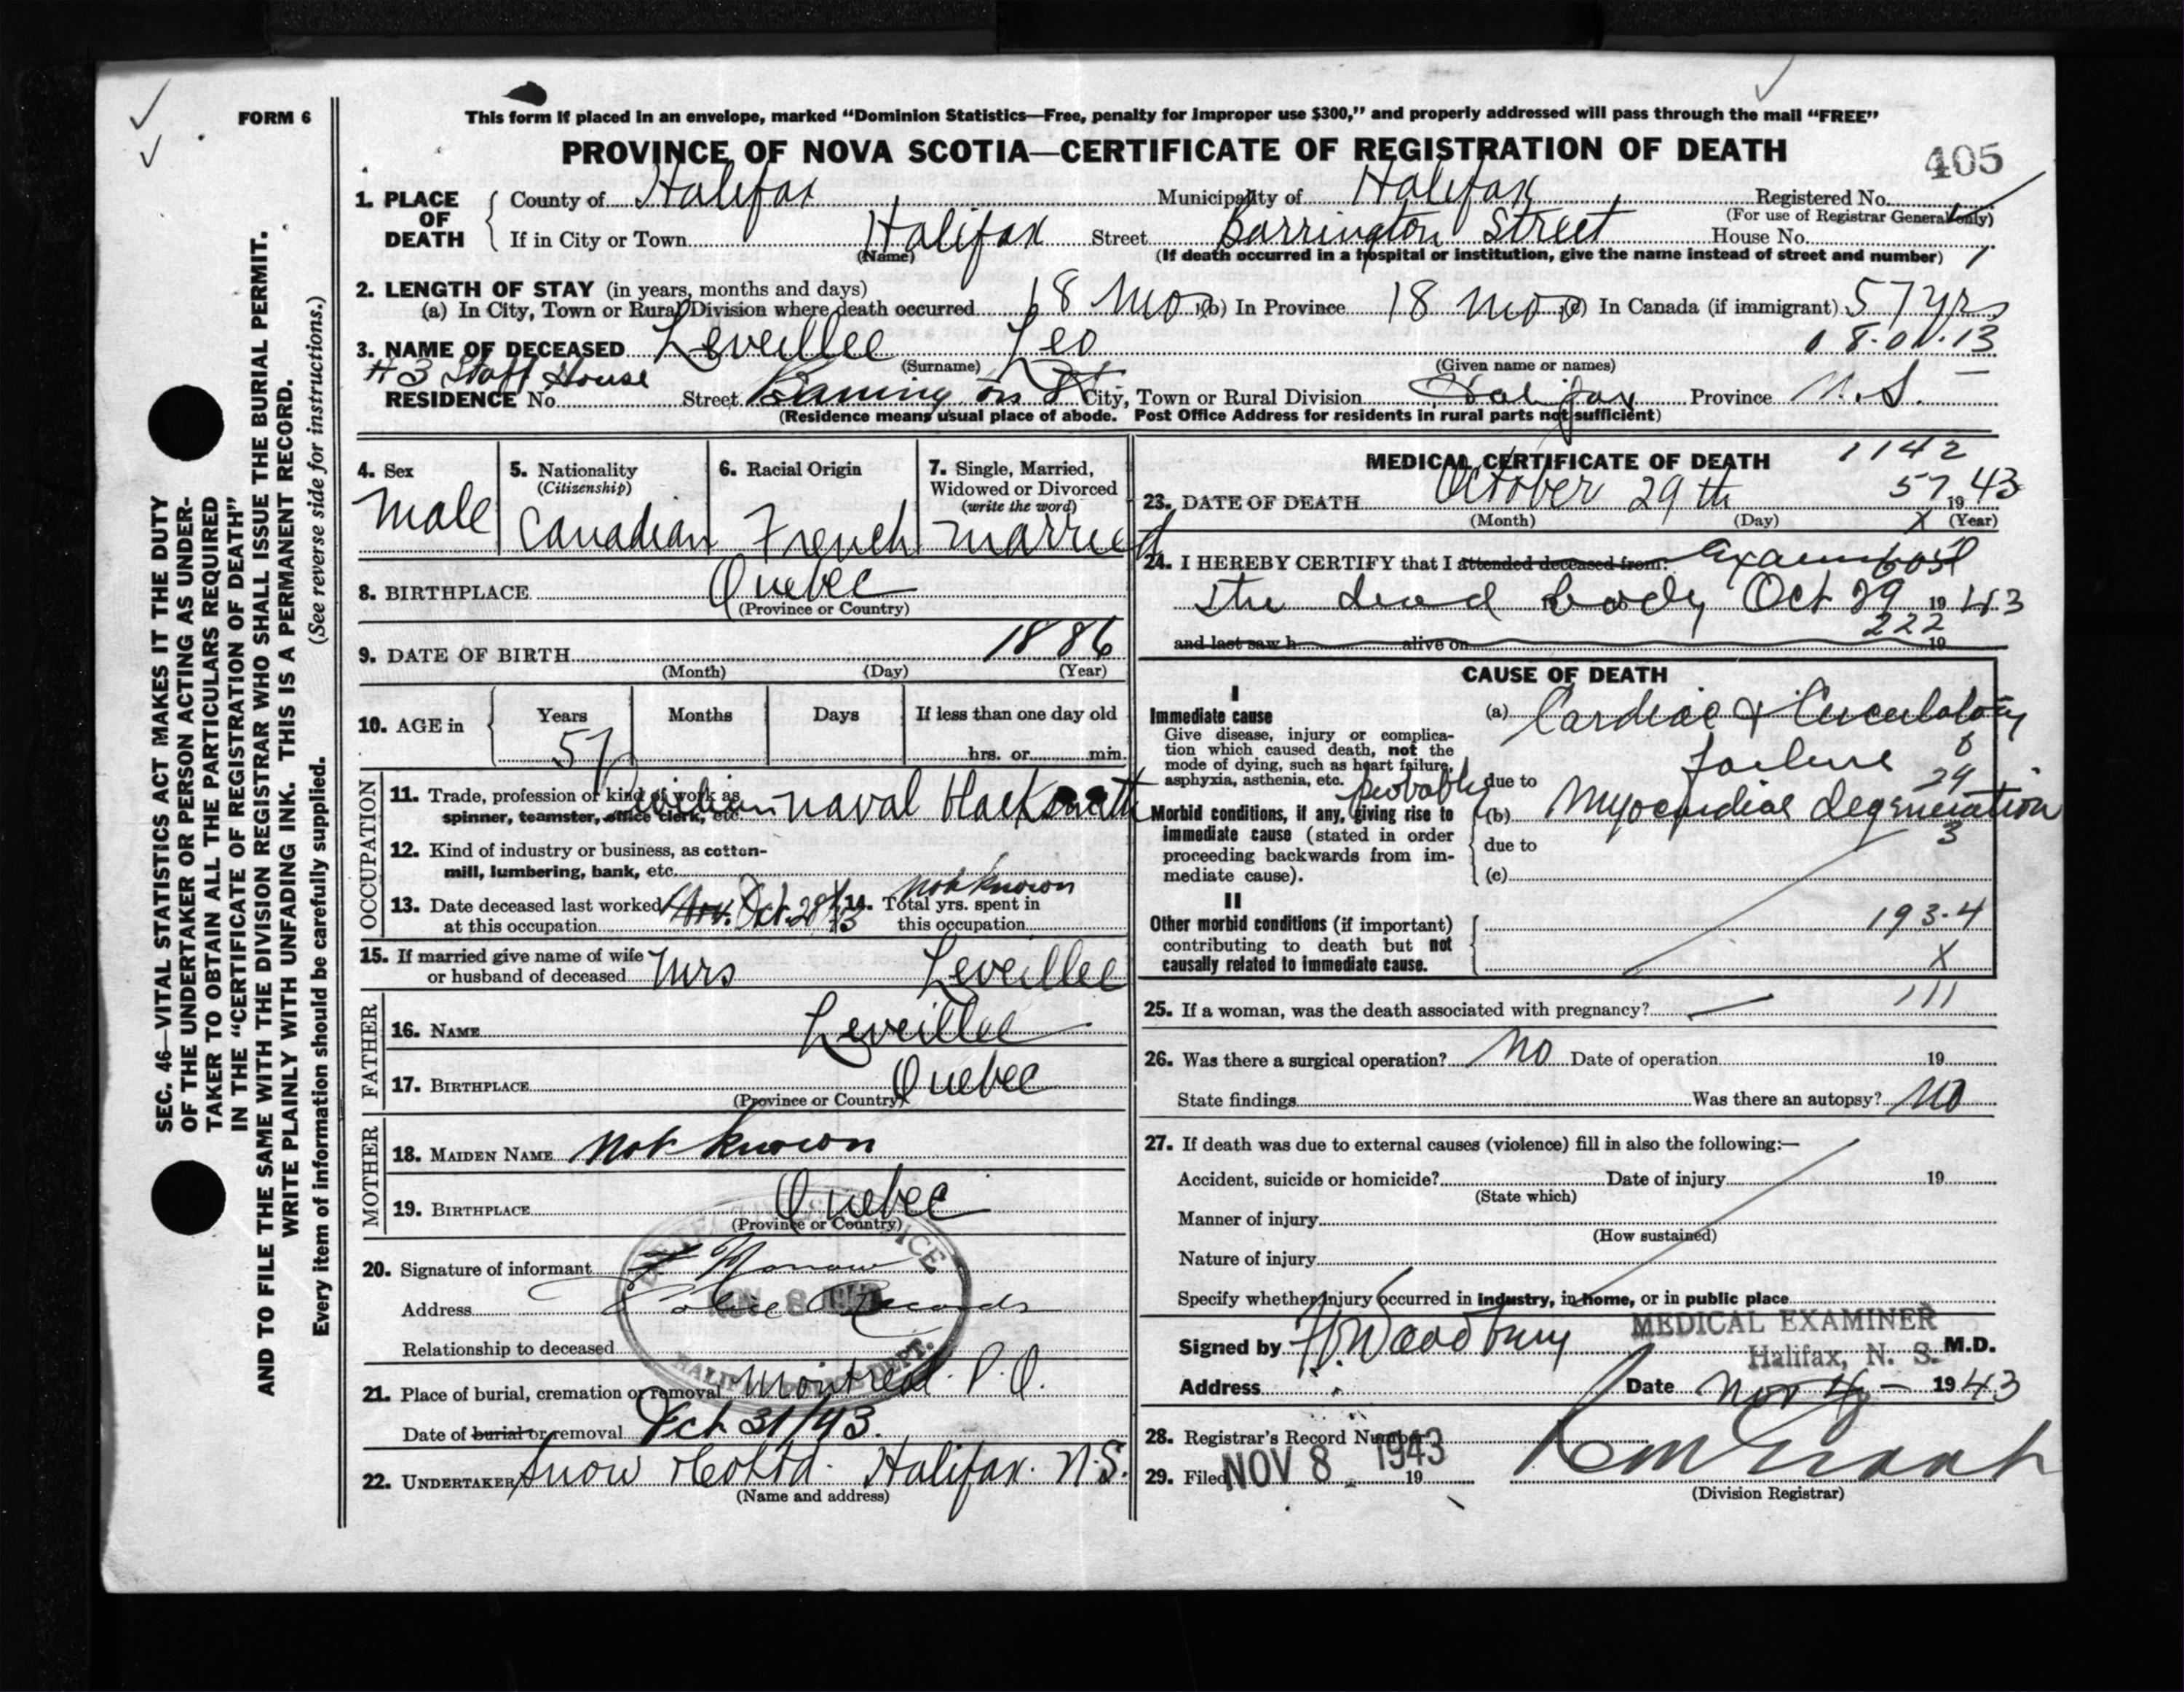 FORM 6
This form if placed in an envelope, marked “Dominion Statistics—Free, penalty for improper use $300,” and properly addressed will pass through the mail “FREE”
PROVINCE OF NOVA SCOTIA—CERTIFICATE OF REGISTRATION OF DEATH
405
1. PLACE OF DEATH
County of Halifax Municipality of Halifax Registered No.
(For use of Registrar General only)
If in City or Town Halifax Street Barrington Street House No.
(Name) (If death occurred in a hospital or institution, give the name instead of street and number) 1
2. LENGTH OF STAY (in years, months and days)
(a) In City, Town or Rural Division where death occurred 18 Mos (b) In Province 18 mos (c) In Canada (if immigrant) 57 yrs
3. NAME OF DECEASED Leveillee Leo
(Surname) (Given name or names)
#3 Staff House
RESIDENCE No. Street City, Town or Rural Division Halifax Province N.S.
(Residence means usual place of abode. Post Office Address for residents in rural parts not sufficient)
4. Sex
Male
5. Nationality
(Citizenship)
Canadian
6. Racial Origin
French
7. Single, Married,
Widowed or Divorced
(write the word)
Married
8. BIRTHPLACE Quebec
(Province or Country)
9. DATE OF BIRTH 1886
(Month) (Day) (Year)
10. AGE in
Years Months Days If less than one day old
57 hrs. or min.
OCCUPATION
11. Trade, profession or kind of work as
spinner, teamster, office clerk, etc. Civilian naval blacksmith
12. Kind of industry or business, as cotton-
mill, lumbering, bank, etc.
13. Date deceased last worked
at this occupation Nov. Oct. 28/43
14. Total yrs. spent in
this occupation not known
15. If married give name of wife
or husband of deceased Mrs Leveillee
FATHER
16. NAME Leveillee
17. BIRTHPLACE Quebec
(Province or Country)
MOTHER
18. MAIDEN NAME not known
19. BIRTHPLACE Quebec
(Province or Country)
20. Signature of informant
Address Police Records
Relationship to deceased
NOV 8
HALIFAX POLICE DEPT.
21. Place of burial, cremation or removal Montreal. P.Q.
Date of burial or removal Oct 31/43.
22. UNDERTAKER Snow & Co Ltd. Halifax. N.S.
(Name and address)
1142
MEDICAL CERTIFICATE OF DEATH
57
23. DATE OF DEATH October 29th 1943
(Month) (Day) (Year)
X
24. I HEREBY CERTIFY that I attended deceased from: Examined
the dead body Oct 29 1943
222
and last saw h alive on 19
CAUSE OF DEATH
I
Immediate cause
Give disease, injury or complica-
tion which caused death, not the
mode of dying, such as heart failure,
asphyxia, asthenia, etc.
(a) Cardiac & Circulatory
failure
due to
probably
Morbid conditions, if any, giving rise to
immediate cause (stated in order
proceeding backwards from im-
mediate cause).
(b) Myocardial degeneration
due to
3
(c)
II
Other morbid conditions (if important)
contributing to death but not
causally related to immediate cause.
193-4
X
111
25. If a woman, was the death associated with pregnancy? —
26. Was there a surgical operation? No Date of operation 19
State findings Was there an autopsy? No
27. If death was due to external causes (violence) fill in also the following:—
Accident, suicide or homicide? Date of injury 19
(State which)
Manner of injury
(How sustained)
Nature of injury
Specify whether injury occurred in industry, in home, or in public place
MEDICAL EXAMINER
Signed by H. Woodbury Halifax, N. S. M.D.
Address Date Nov 4 — 1943
28. Registrar's Record Number
29. Filed NOV 8 1943 19
(Division Registrar)
SEC. 46—VITAL STATISTICS ACT MAKES IT THE DUTY
OF THE UNDERTAKER OR PERSON ACTING AS UNDER-
TAKER TO OBTAIN ALL THE PARTICULARS REQUIRED
IN THE “CERTIFICATE OF REGISTRATION OF DEATH”
AND TO FILE THE SAME WITH THE DIVISION REGISTRAR WHO SHALL ISSUE THE BURIAL PERMIT.
WRITE PLAINLY WITH UNFADING INK. THIS IS A PERMANENT RECORD.
Every item of information should be carefully supplied. (See reverse side for instructions.)